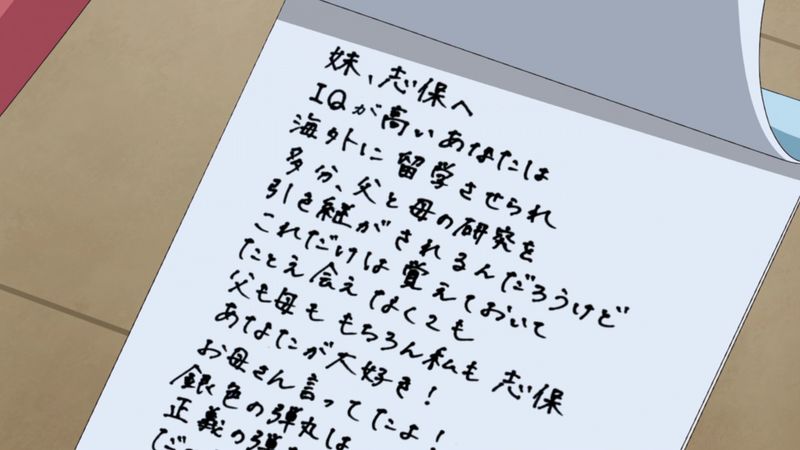 妹、志保へ
IQが高いあなたは
海外に留学させられ
多分、父と母の研究を
引き継がされるんだろうけど
これだけは覚えておいて
たとえ会えなくても
父も母ももちろん私も 志保
あなたが大好き!
お母さん言ってたよ!
銀色の弾丸は
正義の弾